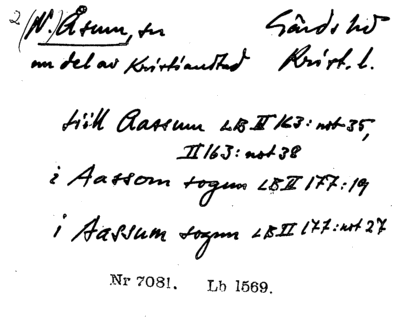 2 (N.) Åsum, sn Gärds hd
nu del av Kristianstad Krist. l.
till Aassum LB II 163: not 35,
II 163: not 38
i Aassom sogun LB II 177: 19
i Aassum sogun LB II 177: not 27
Nr 7081. Lb 1569.